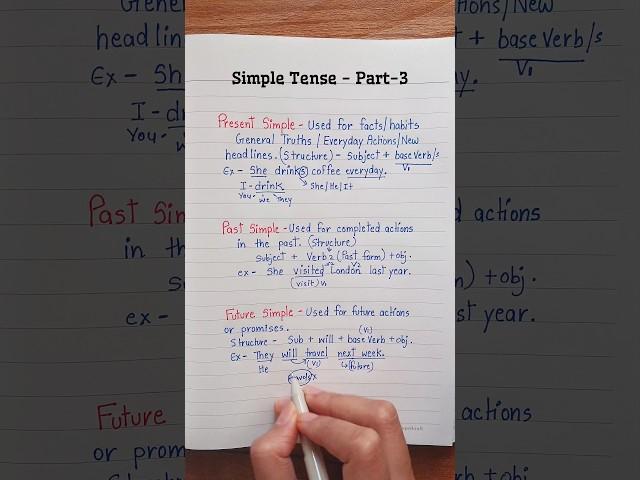 Simple Tense - Part-3
Present Simple - Used for facts/habits
General Truths / Everyday Actions/New
headlines. (Structure) - Subject + base Verb/s
V1
Ex - She drinks coffee everyday.
I - drink She/He/It
You we They
Past Simple - Used for completed actions
in the past. (Structure)
Subject + Verb 2 (Past form) + obj.
V2
ex - She visited London last year.
(visit) V1
Future Simple - Used for future actions
or promises. (V1)
Structure - Sub + will + base Verb + obj.
Ex - They will travel next week.
He (V1) (future)